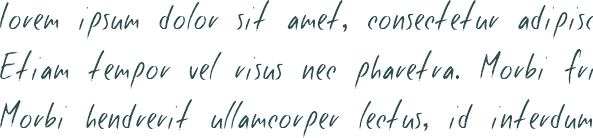 lorem ipsum dolor sit amet, consectetur adipisc
Etiam tempor vel risus nec pharetra. Morbi fri
Morbi hendrerit ullamcorper lectus, id interdum